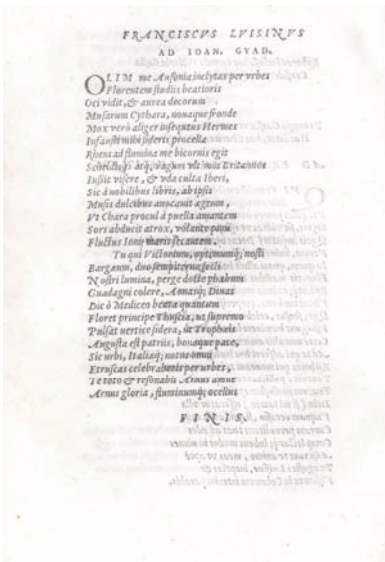 FRANCISCVS LVISINVS
AD IOAN. GVAD.
OLIM me Ausonia inclytas per vrbes
Florentem studiis beatioris
Oci vidit, & aurea decorum
Musarum Cythara, nouaque fronde
Mox verò aliger insequutus Hermes
Infausti mihi sideris procella
Rheni ad flumina me bicornis egit
vagum vlt mìs Britannos
Iussit visere, & vda culta Iberi,
Sic à nobilibus libris, ab ipsis
Musis dulcibus auocauit ægrum,
Vt Chara procul à puella amantem
Sors abducit atrox, volante pinu
Fluctus Ionij maris secantem.
Tu qui Victorium, optimumq; nosti
Bargæum, duo sempiterna secli
Nostri lumina, perge docte phæbum
Guadagni colere, Aonasq; Diuas
Dic ò Mediceo beata quantum
Floret principe Thuscia, vt supremo
Pulsat vertice sidera, vt Trophæis
Augusta est patriis, bonaque pace,
Sic vrbi, Italiæq; notus omni
Etruscas celebraberis per vrbes,
Te toto & resonabit Arnus amne
Arnus gloria, fluminumq; ocellus
FINIS.